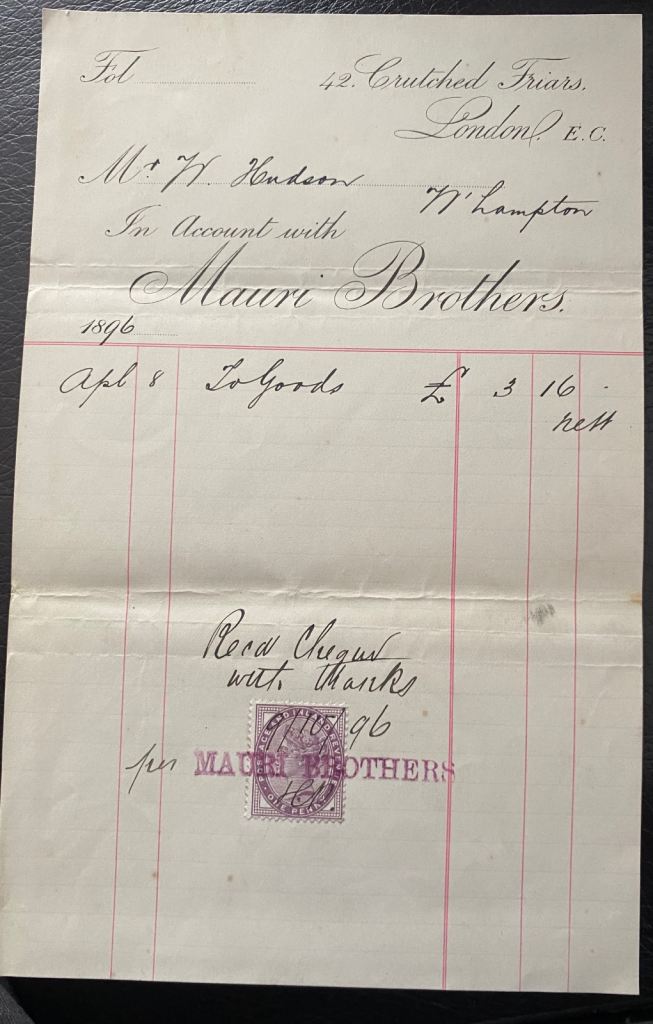 Fol
42. Crutched Friars.
London. E.C.
Mr W. Hudson
W'hampton
In Account with
Mauri Brothers.
1896
Apl 8 To Goods £ 3 16 .
nett
Recd Cheque
with thanks
/10/96
per MAURI BROTHERS
POSTAGE AND INLAND REVENUE
ONE PENNY